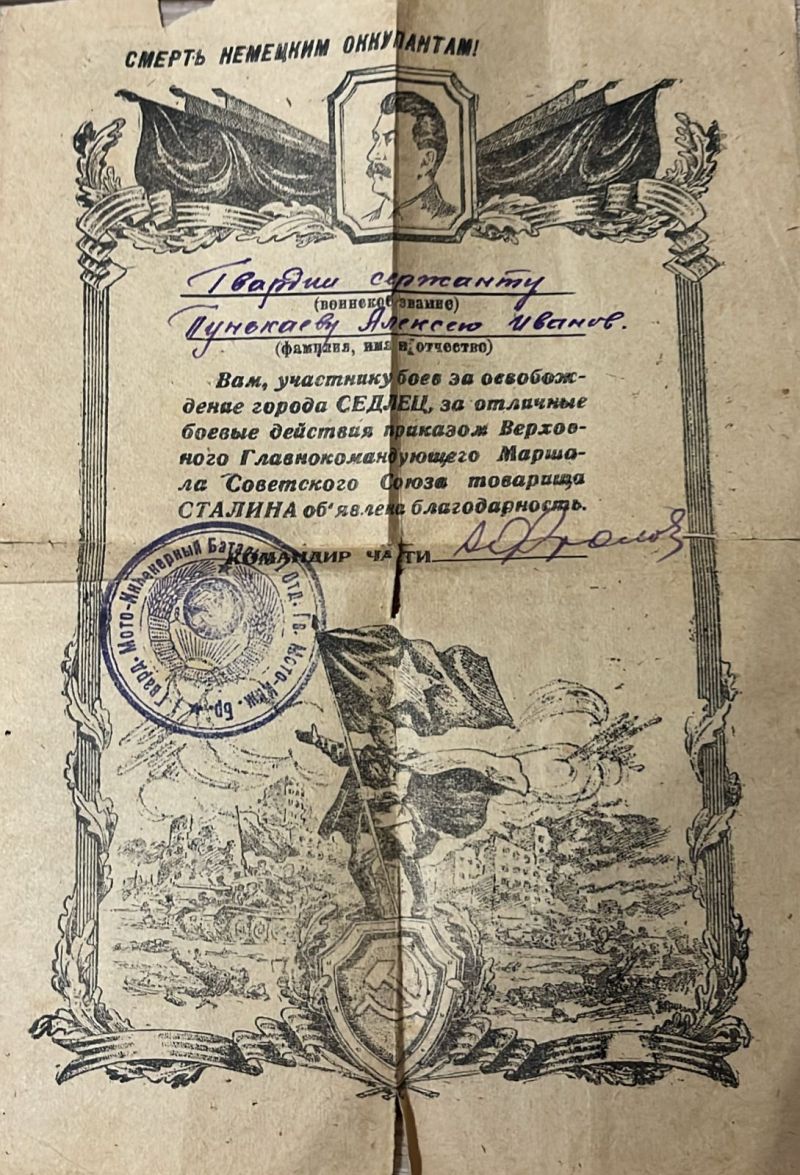 СМЕРТЬ НЕМЕЦКИМ ОККУПАНТАМ!
Гвардии сержанту
(воинское звание)
Пунькаеву Алексею Иванов.
(фамилия, имя и отчество)
Вам, участнику боев за освобож-
дение города СЕДЛЕЦ, за отличные
боевые действия приказом Верхов-
ного Главнокомандующего Марша-
ла Советского Союза товарища
СТАЛИНА об'явлена благодарность.
КОМАНДИР ЧАСТИ
Гвард. Мото-Инженерный Батальон Отд. Гв. Мото-Инж. Бр.